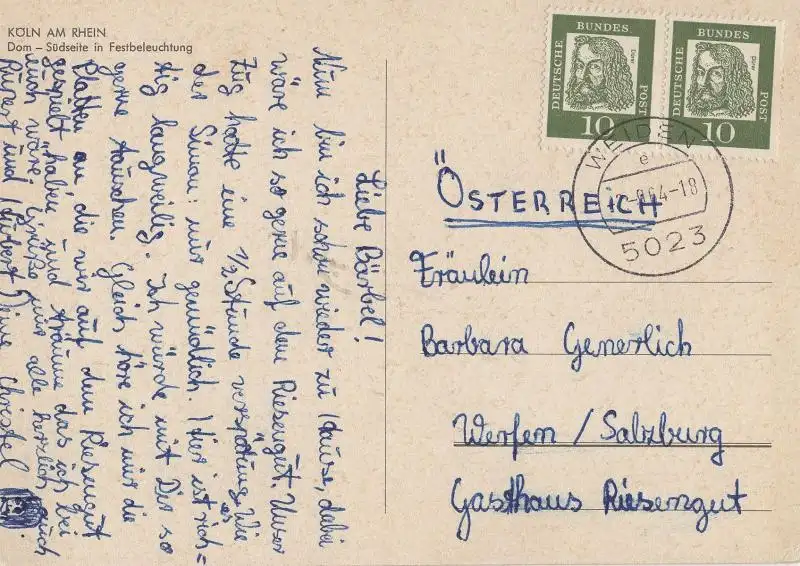 KÖLN AM RHEIN
Dom – Südseite in Festbeleuchtung
Liebe Bärbel!
Nun bin ich schon wieder zu Hause, dabei
wäre ich so gerne auf dem Riesengut. Unser
Zug hatte eine 1/2 Stunde verspätung. Wie
es der Simon: nur gemüdlich. Hier ist rich=
tig langweilig. Ich würde mit Dir so
gerne tauschen. Gleich höre ich mir die
Platten an, die wir auf dem Riesengut
gespielt haben und träume das ich bei
euch wäre. Grüße mir alle herzlich auch
Rupert und Hubert Deine Christel
DEUTSCHE BUNDES POST
Dürer
10
DEUTSCHE BUNDES POST
Dürer
10
WEIDEN
e
-8.64-18
5023
ÖSTERREiCH
Fräulein
Barbara Generlich
Werfen / Salzburg
Gasthaus Riesengut